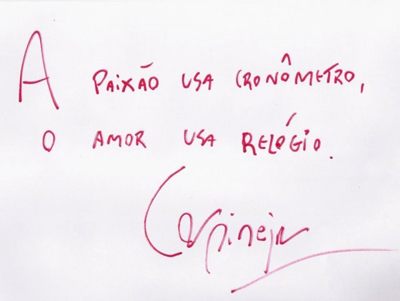 A PAIXÃO USA CRONÔMETRO,
O AMOR USA RELÓGIO.
Carpinejar